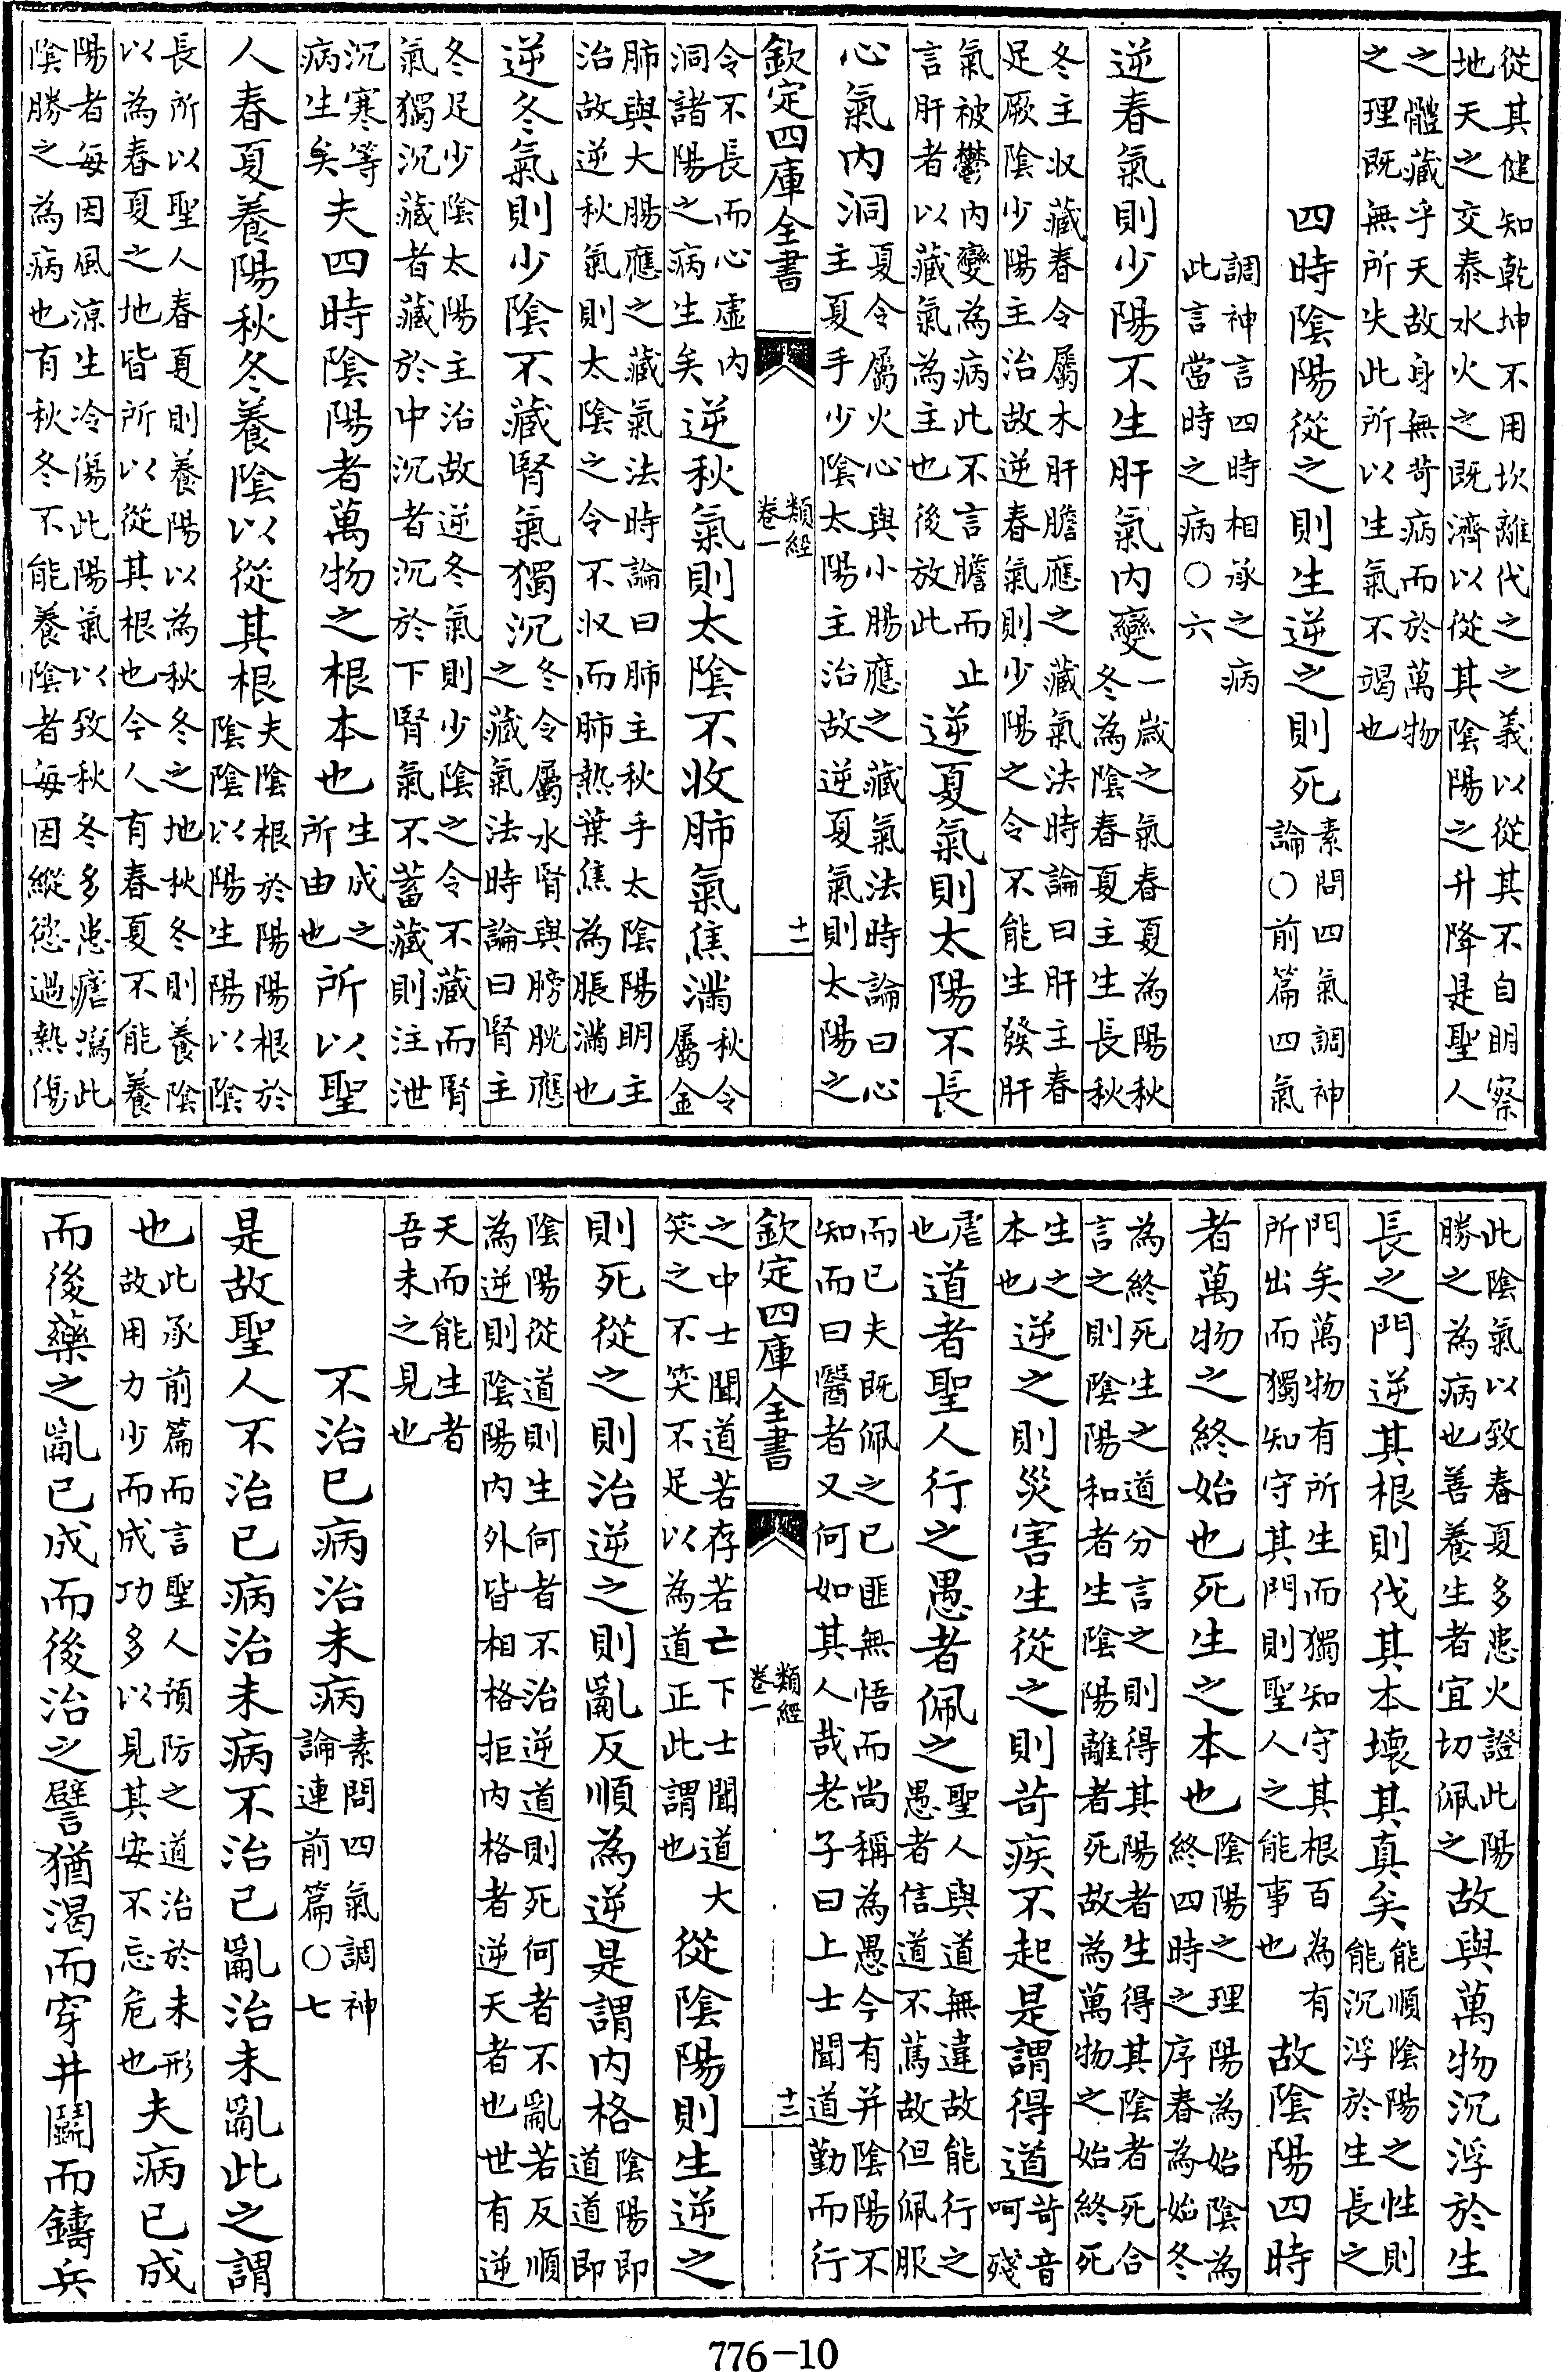 從其健知乾坤不用坎離代之之義以從其不自明察
地天之交泰水火之既濟以從其陰陽之升降是聖人
之體藏乎天故身無苛病而於萬物
之理既無所失此所以生氣不竭也
四時陰陽從之則生逆之則死素問四氣調神論○前篇四氣
調神言四時相承之病
此言當時之病○六
逆春氣則少陽不生肝氣内變一歲之氣春夏為陽秋冬為陰春夏主生長秋
冬主收藏春令屬木肝膽應之藏氣法時論曰肝主春
足厥陰少陽主治故逆春氣則少陽之令不能生發肝
氣被鬱内變為病此不言膽而止言肝者以藏氣為主也後放此逆夏氣則太陽不長
心氣内洞夏令屬火心與小腸應之藏氣法時論曰心主夏手少陰太陽主治故逆夏氣則太陽之
欽定四庫全書 類經卷一 十二
令不長而心虛内洞諸陽之病生矣逆秋氣則太陰不收肺氣焦滿秋令屬金
肺與大腸應之藏氣法時論曰肺主秋手太陰陽明主
治故逆秋氣則太陰之令不收而肺熱葉焦為脹滿也
逆冬氣則少陰不藏腎氣獨沉冬令屬水腎與膀胱應之藏氣法時論曰腎主
冬足少陰太陽主治故逆冬氣則少陰之令不藏而腎
氣獨沉藏者藏於中沉者沉於下腎氣不蓄藏則注泄
沉寒等病生矣夫四時陰陽者萬物之根本也生成之所由也所以聖
人春夏養陽秋冬養陰以從其根夫陰根於陽陽根於陰陰以陽生陽以陰
長所以聖人春夏則養陽以為秋冬之地秋冬則養陰
以為春夏之地皆所以從其根也今人有春夏不能養
陽者每因風凉生冷傷此陽氣以致秋冬多患瘧瀉此
陰勝之為病也有秋冬不能養陰者每因縱慾過熱傷
此陰氣以致春夏多患火證此陽勝之為病也善養生者宜切佩之故與萬物沉浮於生
長之門逆其根則伐其本壞其真矣能順陰陽之性則能沉浮於生長之
門矣萬物有所生而獨知守其根百為有所出而獨知守其門則聖人之能事也故陰陽四時
者萬物之終始也死生之本也陰陽之理陽為始陰為終四時之序春為始冬
為終死生之道分言之則得其陽者生得其陰者死合
言之則陰陽和者生陰陽離者死故為萬物之始終死
生之本也逆之則災害生從之則苛疾不起是謂得道苛音呵殘
虐也道者聖人行之愚者佩之聖人與道無違故能行之愚者信道不篤故但佩服
而已夫既佩之已匪無悟而尚稱為愚今有并陰陽不
知而曰醫者又何如其人哉老子曰上士聞道勤而行
欽定四庫全書 類經卷一 十二
之中士聞道若存若亡下士聞道大笑之不笑不足以為道正此謂也從陰陽則生逆之
則死從之則治逆之則亂反順為逆是謂内格陰陽即道道即
陰陽從道則生何者不治逆道則死何者不亂若反順
為逆則陰陽内外皆相格拒内格者逆天者也世有逆
天而能生者
吾未之見也
不治已病治未病素問四氣調神論連前篇○七
是故聖人不治已病治未病不治已亂治未亂此之謂
也此承前篇而言聖人預防之道治於未形故用力少而成功多以見其安不忘危也夫病已成
而後藥之亂已成而後治之譬猶渴而穿井鬭而鑄兵
776-10